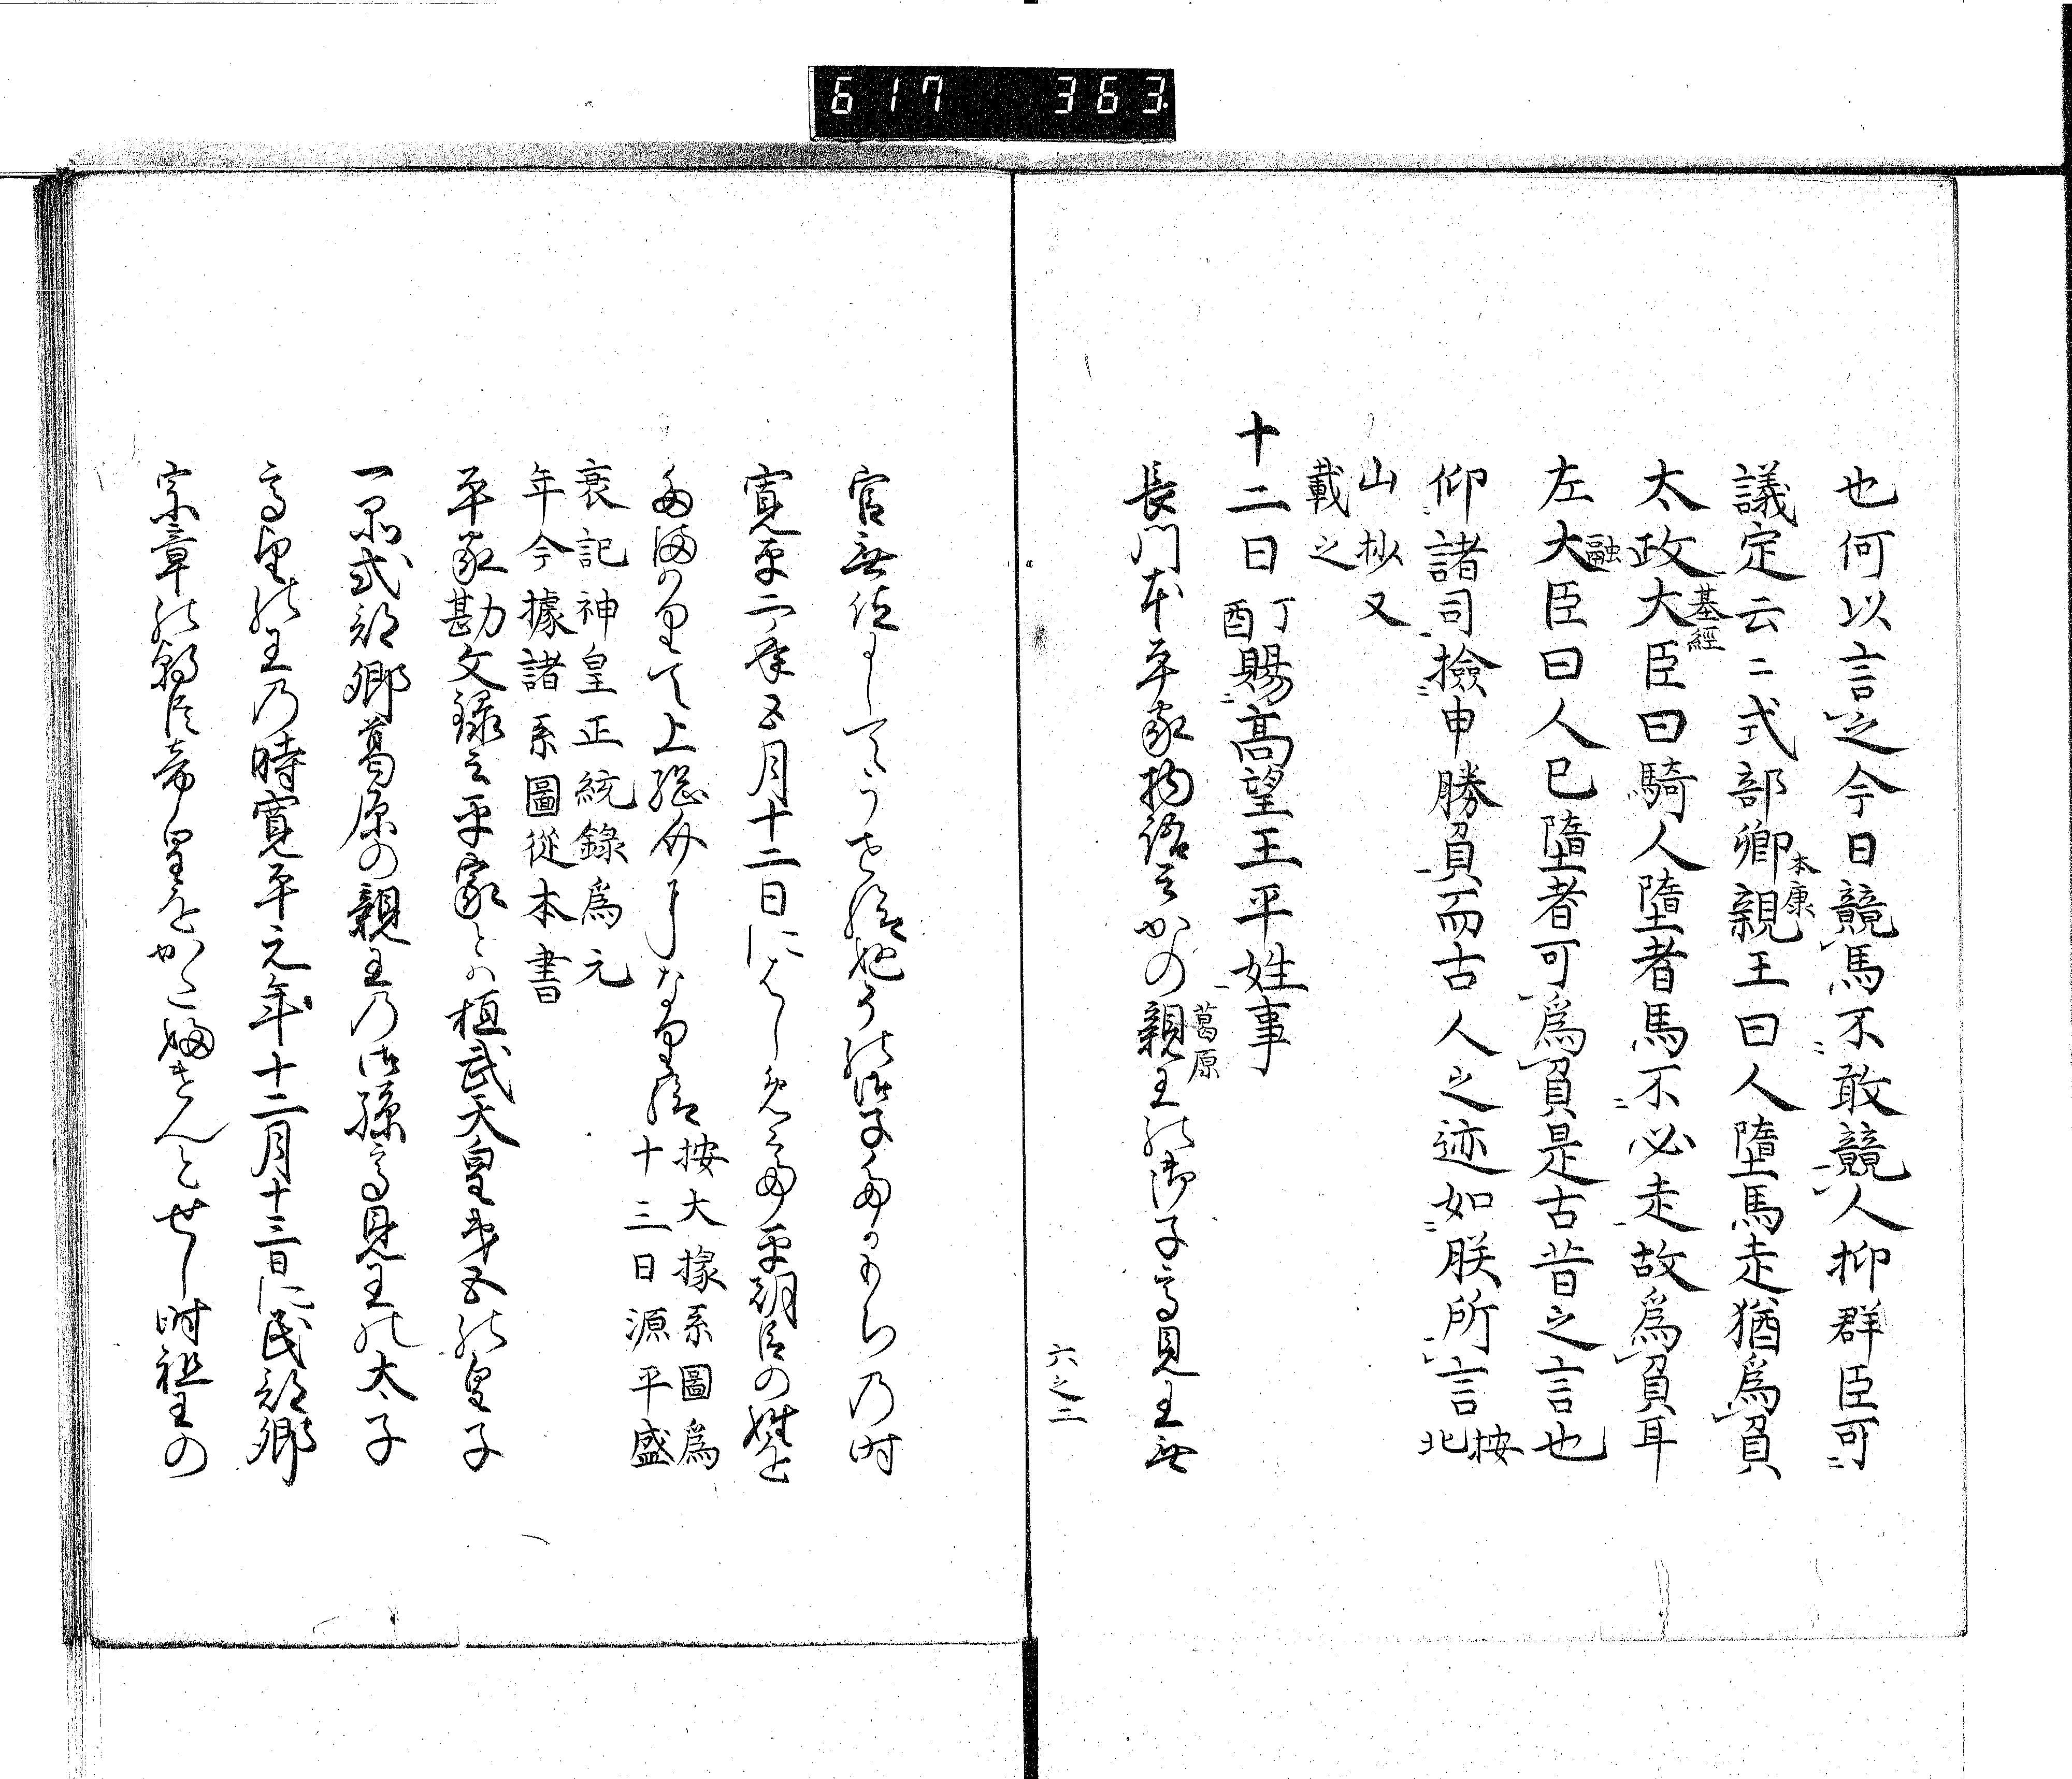 617 363
也何以言之今日競馬不敢競人抑群臣可
議定云ニ式部卿本康親王曰人墮馬走猶爲負
太政大臣基經曰騎人墮者馬不必走故爲負耳
左大臣融曰人已墮者可爲負是古昔之言也
仰諸司撿申勝負而古人之迹如朕所言按北
山抄又
載之
十二日丁酉賜高望王平姓事
長門本平家物語云かの親王葛原の御子高見王無
六之二
官無位にしてうせ給ぬその御子たかもちの時
寛平二年五月十二日にはしめて平朝臣の姓を
たまはりて上総介になり給按大掾系圖爲
十三日源平盛
衰記神皇正統錄爲元
年今據諸系圖從本書
平家勘文録云平家とは桓武天皇第五の皇子
一品式部卿葛原の親王乃御孫高見王の太子
高望の王乃時寛平元年十二月十三日に民部卿
宗章の朝臣帝皇をかたふけんとせし時祖王の